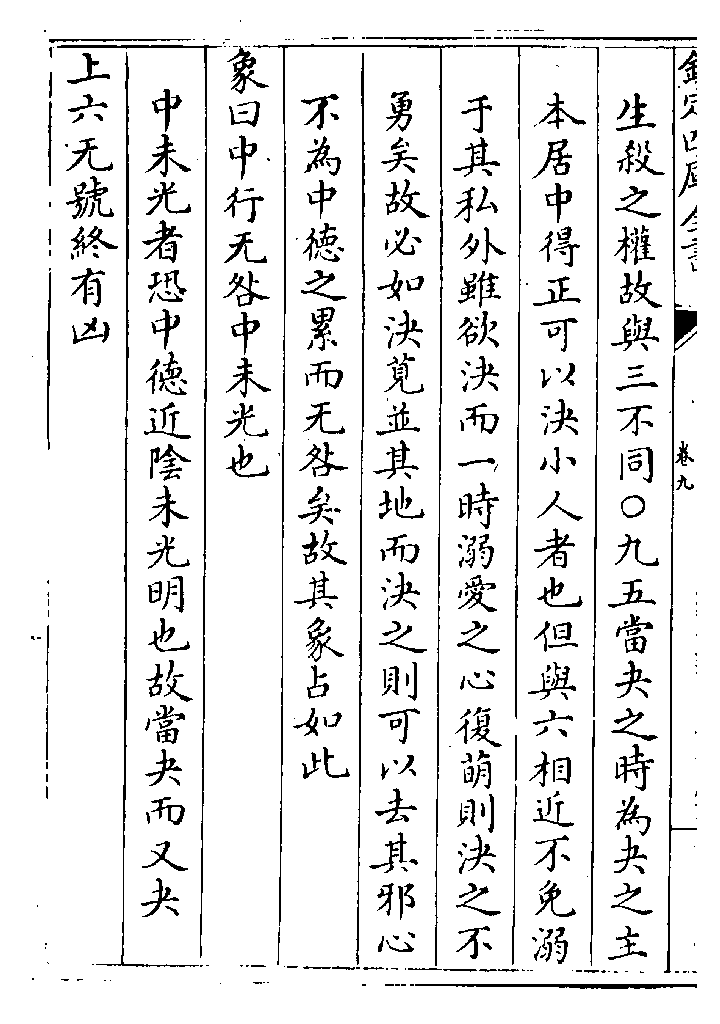 欽定四庫全書
卷九
生殺之權故與三不同○九五當夬之時為夬之主
本居中得正可以決小人者也但與六相近不免溺
于其私外雖欲決而一時溺愛之心復萌則決之不
勇矣故必如決莧並其地而決之則可以去其邪心
不為中德之累而无咎矣故其象占如此
象曰中行无咎中未光也
中未光者恐中德近陰未光明也故當夬而又夬
上六无號終有凶